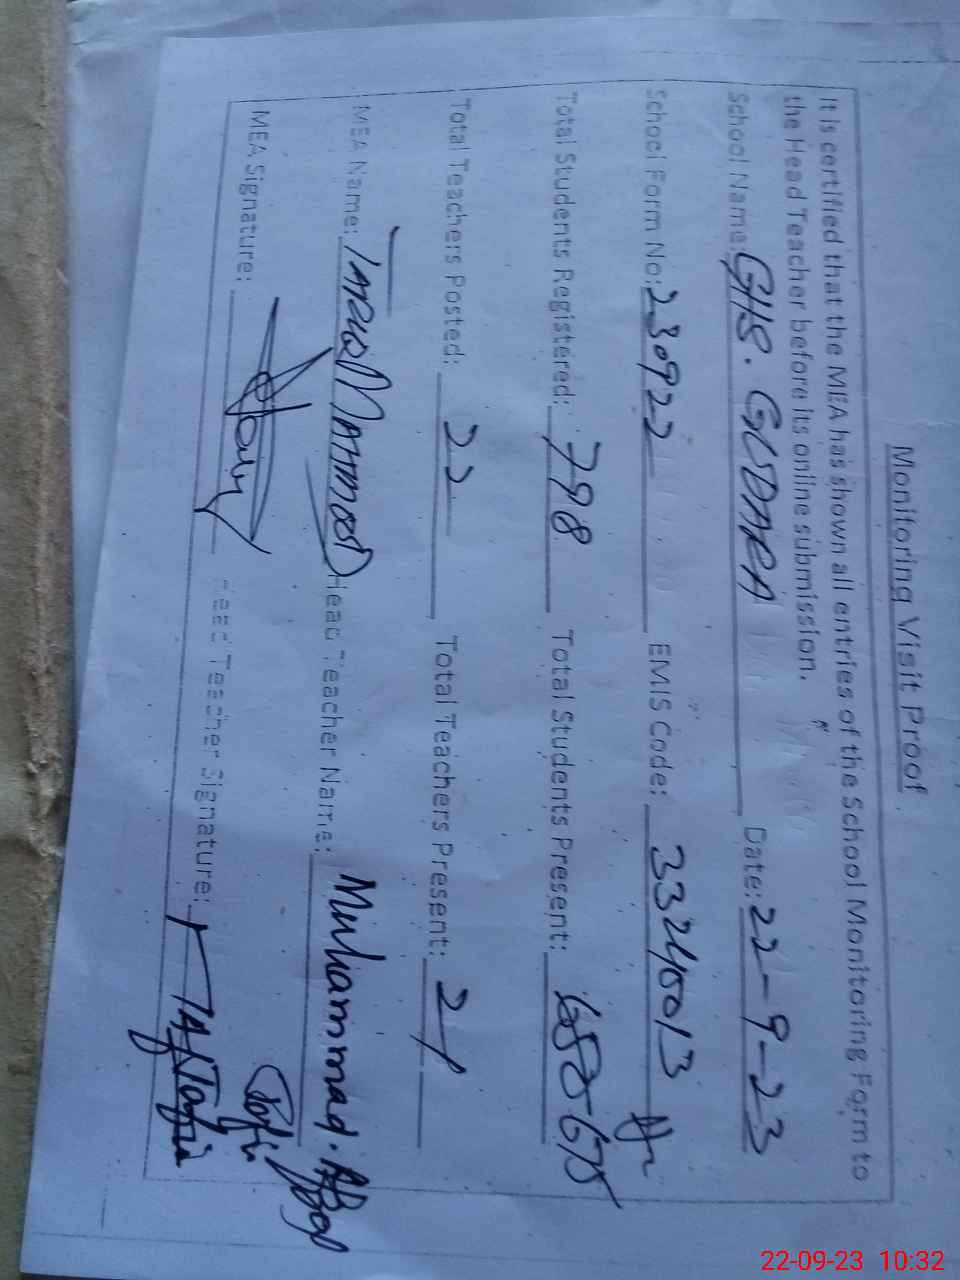 Monitoring Visit Proof
It is certified that the MEA has shown all entries of the School Monitoring Form to
the Head Teacher before its online submission.
School Name: GHS. GIDARA Date: 22-9-23
School Form No: 230922 EMIS Code: 33240013
Total Students Registered: 798 Total Students Present: 675
Total Teachers Posted: 22 Total Teachers Present: 21
MEA Name: Tariq Mahmood Head Teacher Name: Muhammad.
MEA Signature: Head Teacher Signature:
22-09-23 10:32